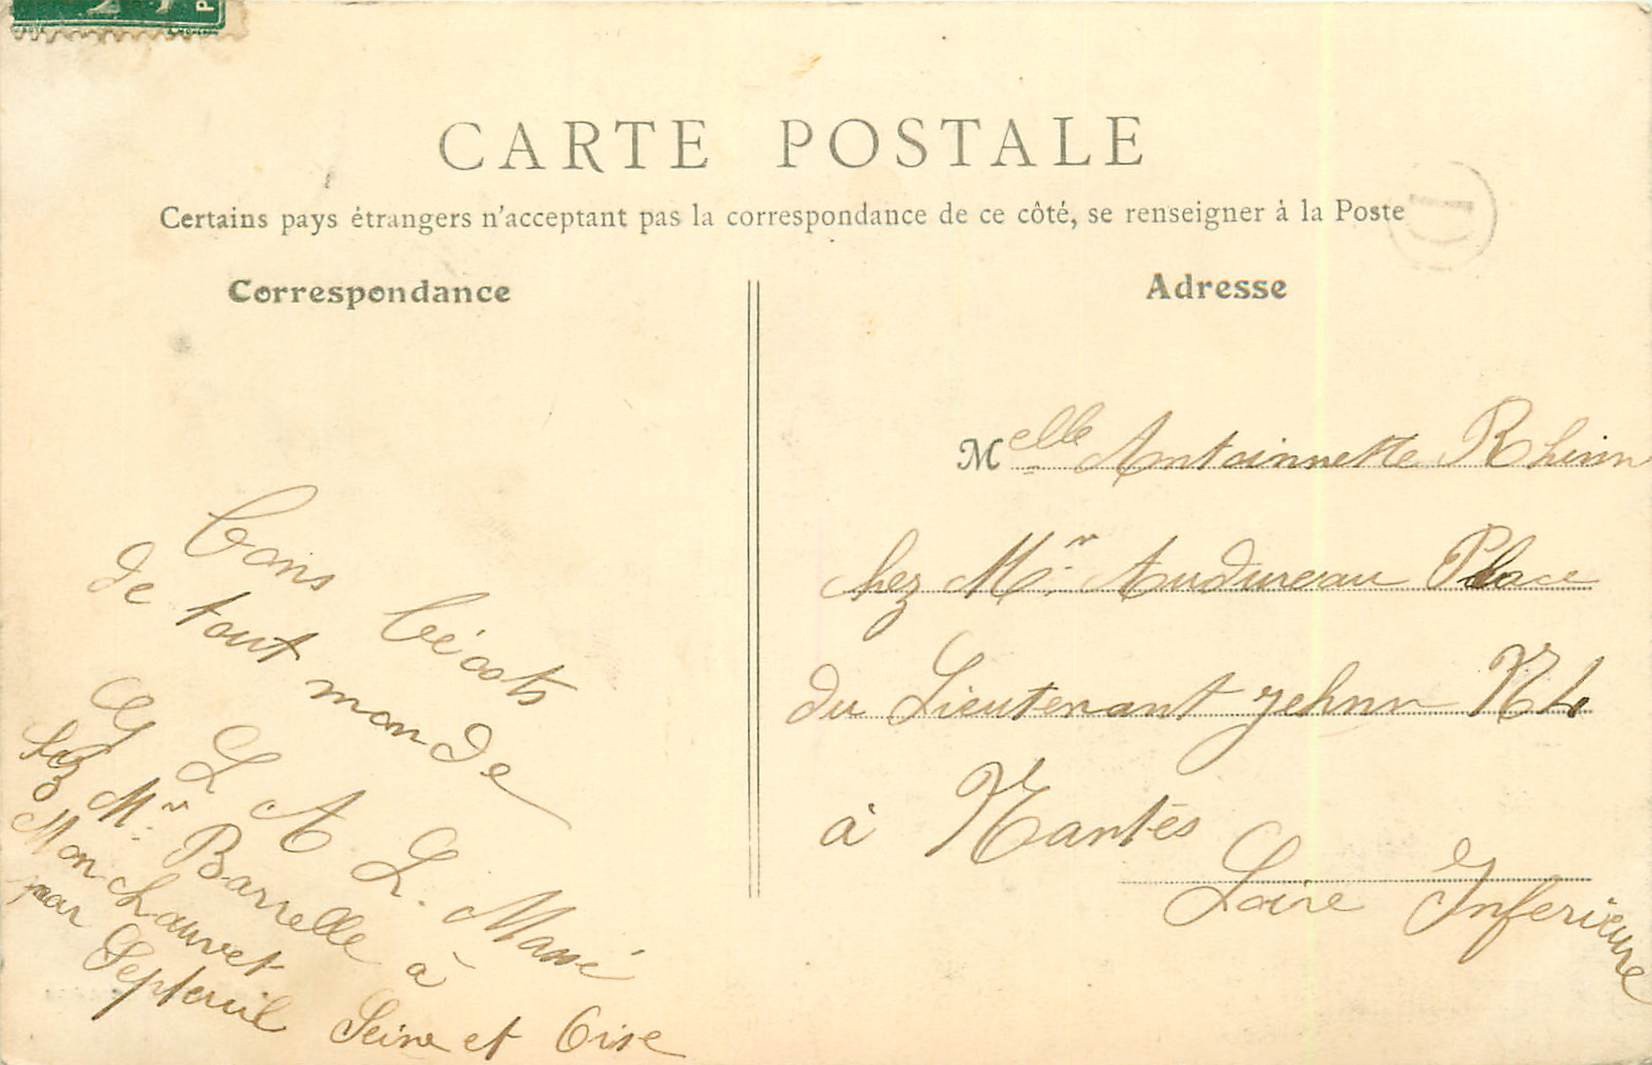 CARTE POSTALE
Certains pays étrangers n'acceptant pas la correspondance de ce côté, se renseigner à la Poste
D
Correspondance
Bons bécots
de tout monde
G L A L. Massé
chez Mr. Barrelle à
Monchauvet
par Septeuil Seine et Oise
Adresse
Melle Antoinnette Rhinn
chez Mr. Audureau Place
du Lieutenant Jehnn N 4
à Nantes
Loire Inferieure